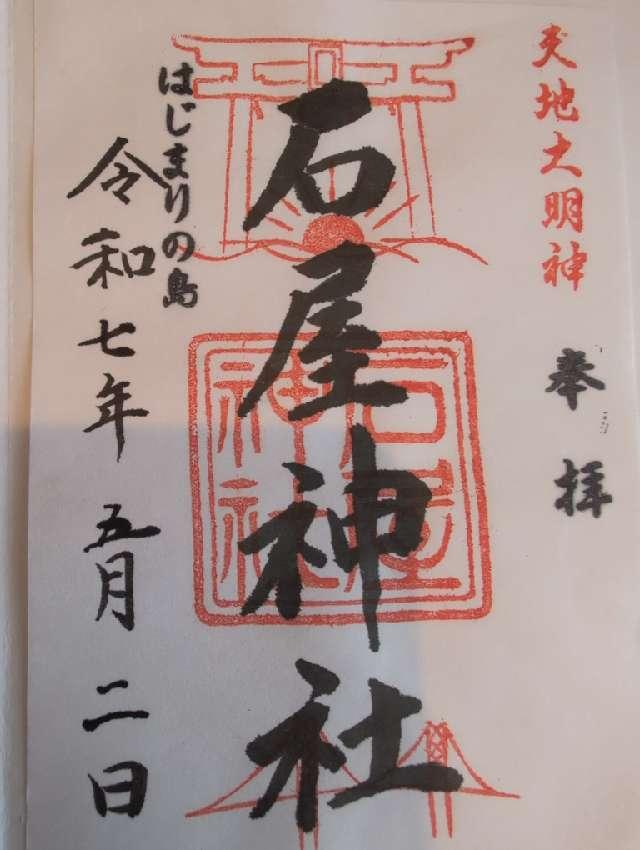 天地大明神
奉拝
石屋神社
石屋神社
はじまりの島
令和七年五月二日